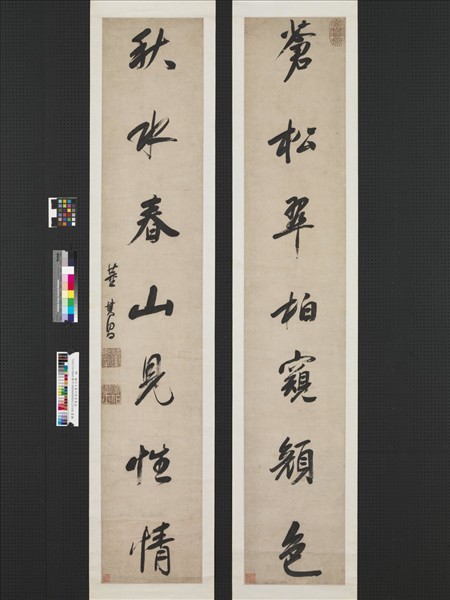 蒼松翠柏窺顏色
秋水春山見性情
董其昌